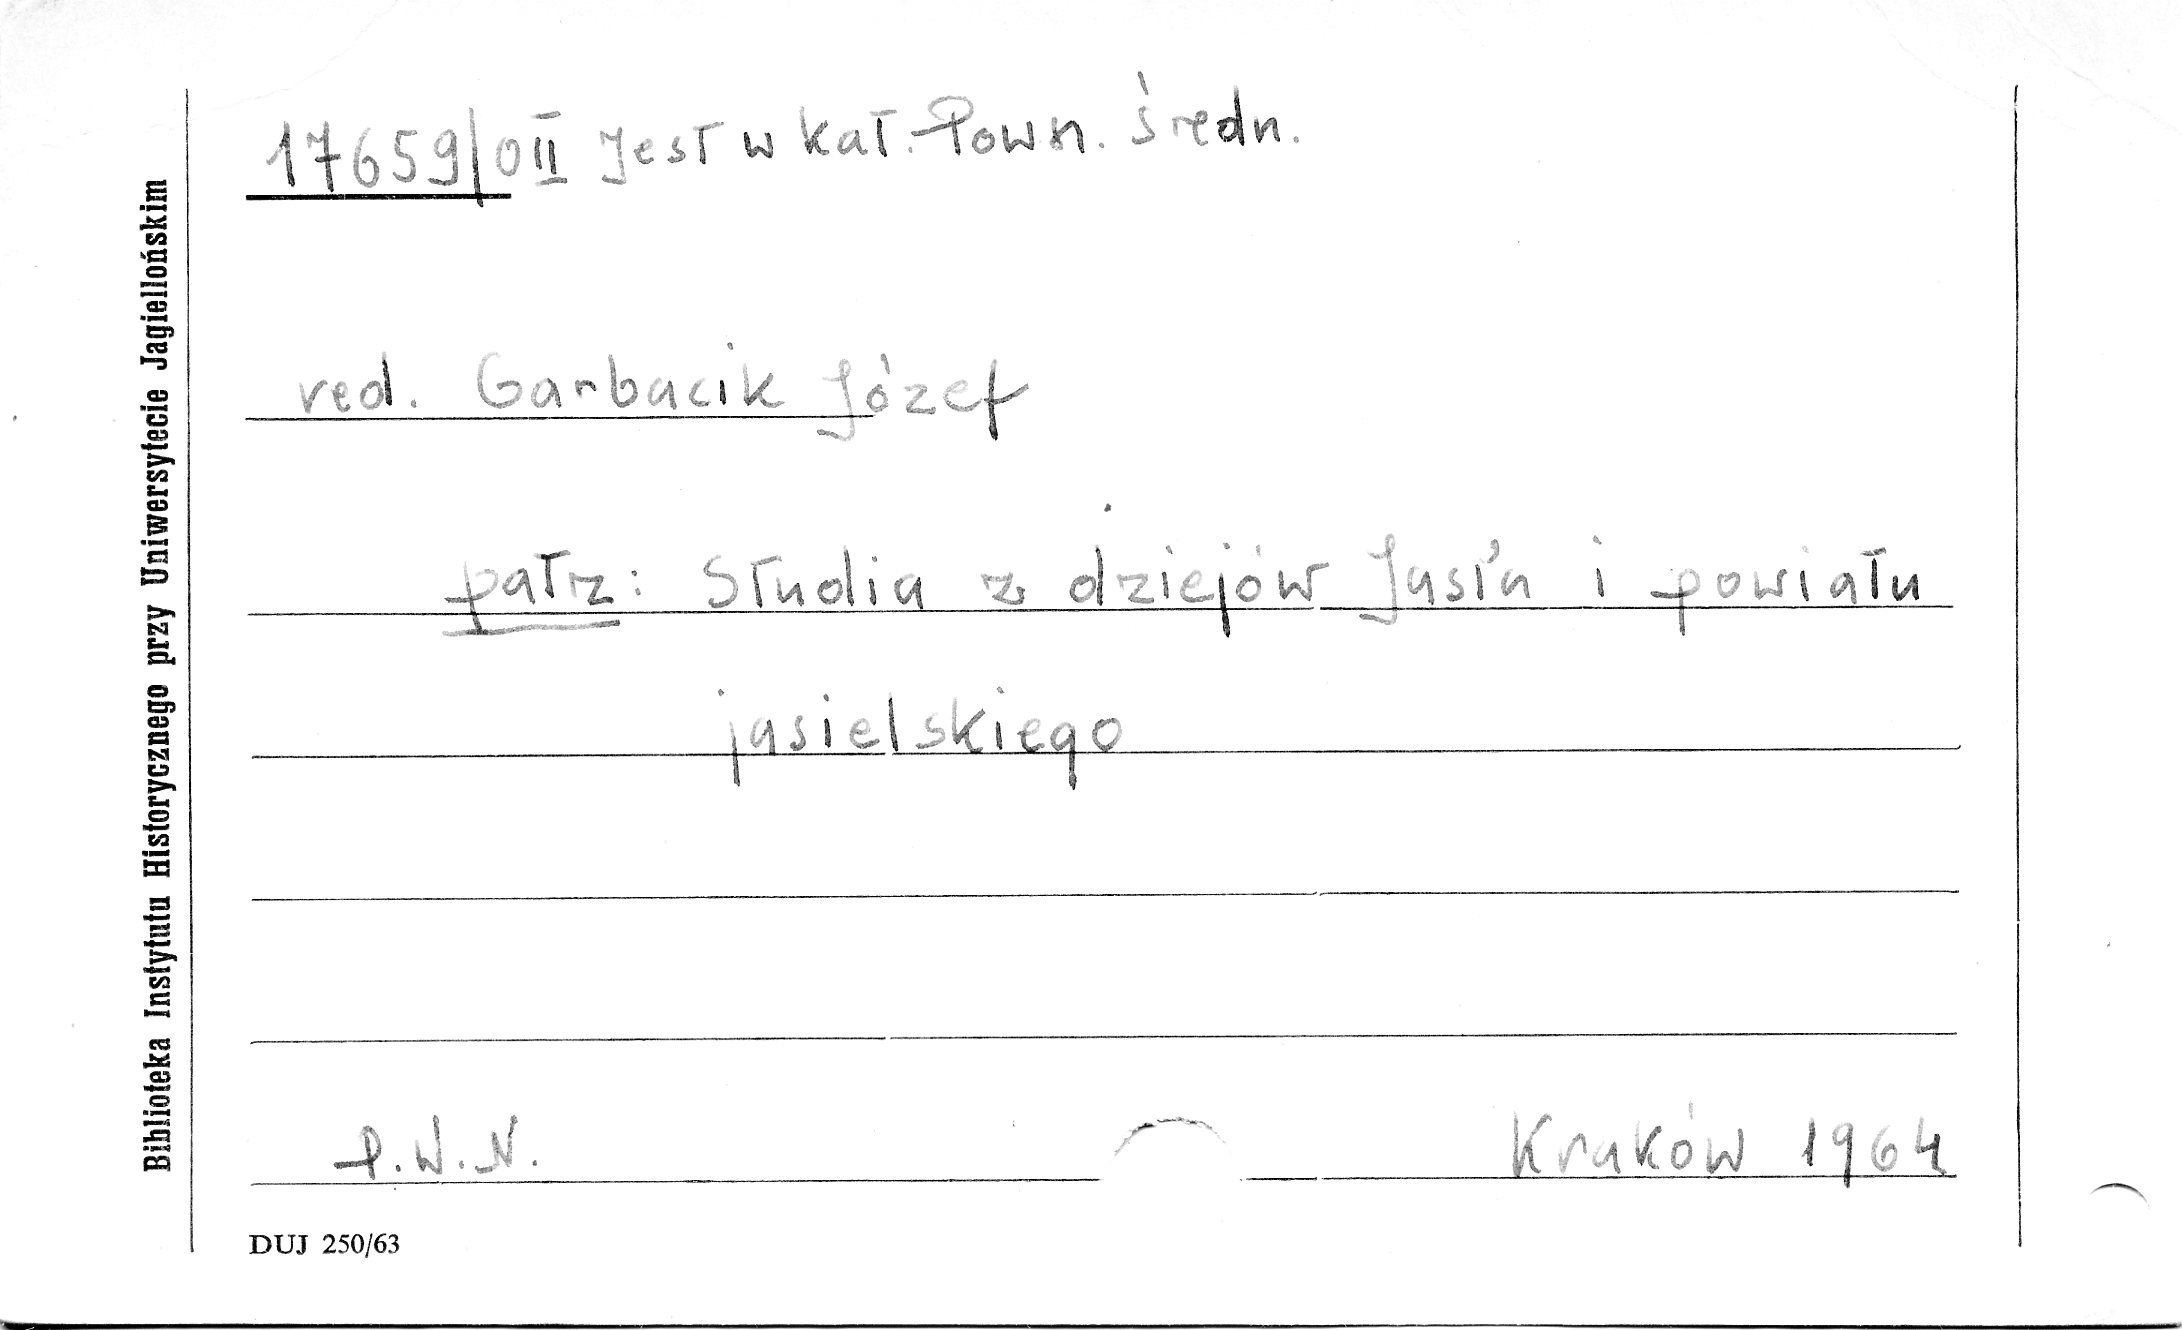 17659/0II Jest w kat. Powsz. średn.
red. Garbacik Józef
patrz: Studia z dziejów Jasła i powiatu
jasielskiego
P.W.N. Kraków 1964
DUJ 250/63
Biblioteka Instytutu Historycznego przy Uniwersytecie Jagiellońskim